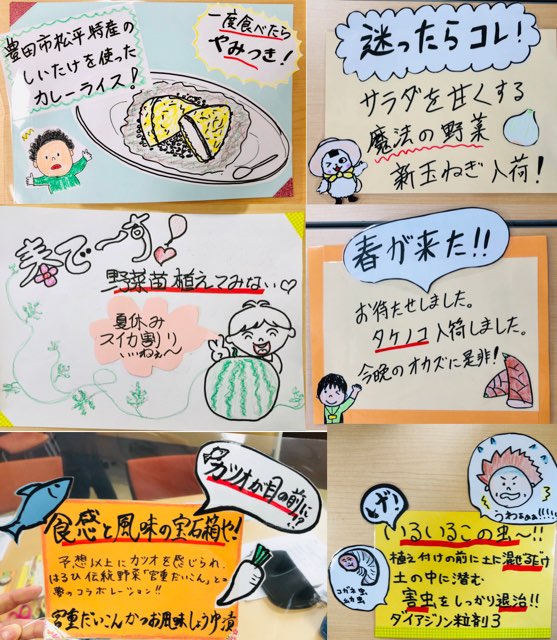 豊田市松平特産の
しいたけを使った
カレーライス!
一度食べたら
やみつき!
迷ったらコレ!
サラダを甘くする
魔法の野菜
新玉ねぎ入荷!
春で〜す!
野菜苗植えてみない♡
夏休み
スイカ割り
いいねぇ〜
春が来た!!
お待たせしました。
タケノコ入荷しました。
今晩のオカズに是非!
カツオが目の前に!?
食感と風味の宝石箱や!
予想以上にカツオを感じられ、
はるひ伝統野菜「宮重だいこん」との
夢のコラボレーション!!
宮重だいこんかつお風味しょうゆ漬
うわぁぁぁ!!!
ゲ!
いるいるこの虫〜!!
植え付けの前に土に混ぜるだけ
土の中に潜む
害虫をしっかり退治!!
ダイアジノン粒剤3
コガネ虫